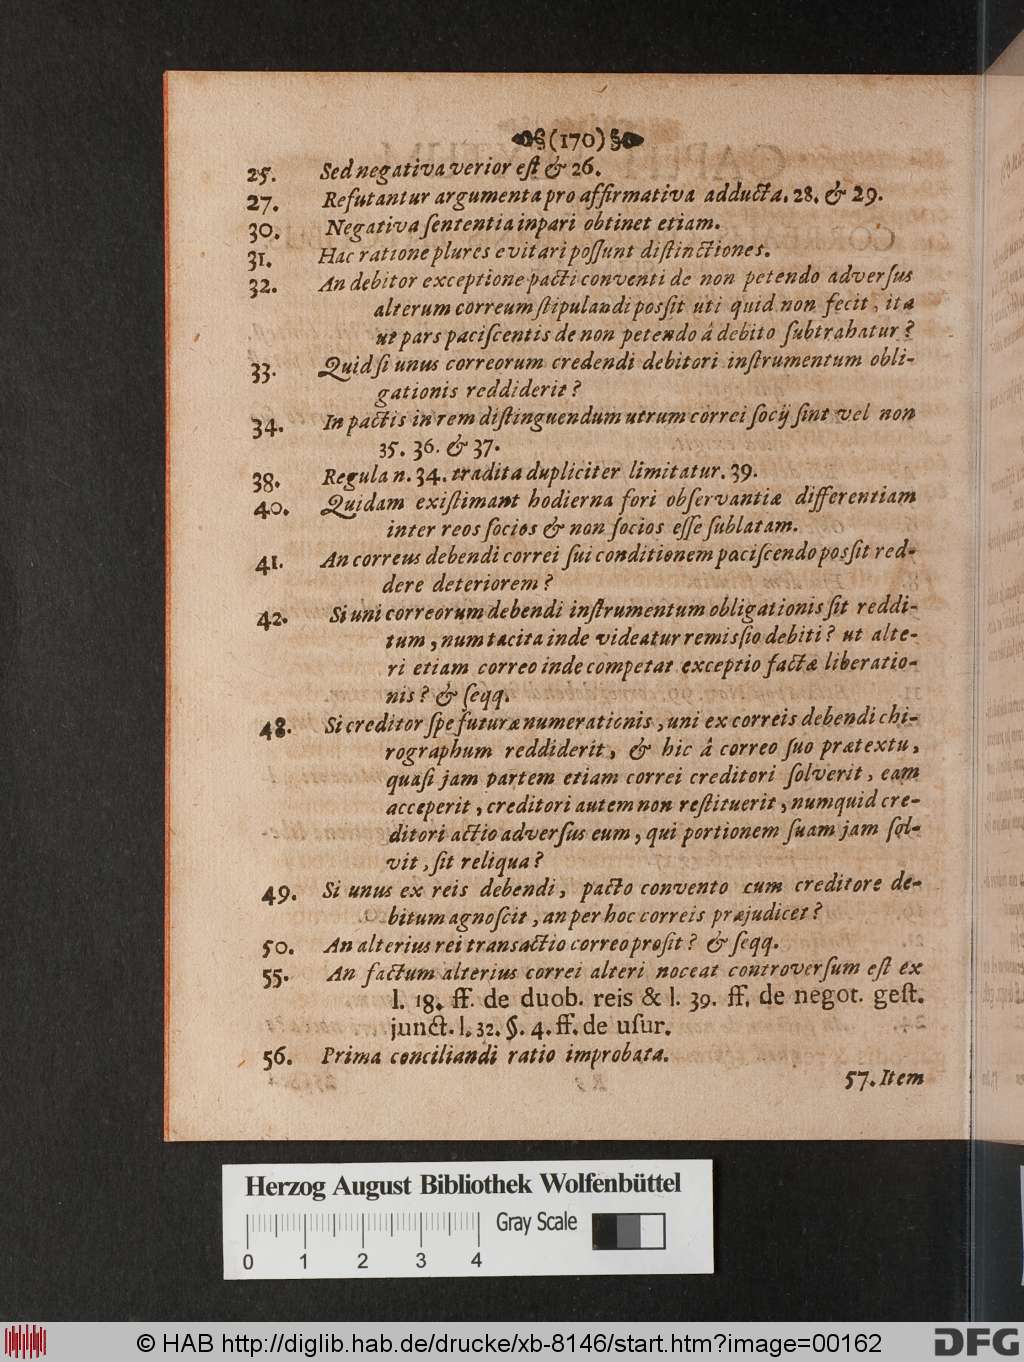 (170)
25. Sed negativa verior eſt & 26.
27. Refutantur argumenta pro affirmativa adducta. 28. & 29.
30. Negativa ſententia in pari obtinet etiam.
31. Hac ratione plures evitari poſſunt diſtinctiones.
32. An debitor exceptione pacti conventi de non petendo adverſus
alterum correum ſtipulandi poſsit uti quid non fecit, ita
ut pars paciſcentis de non petendo â debito ſubtrahatur?
33. Quid ſi unus correorum credendi debitori inſtrumentum obli-
gationis reddiderit?
34. In pactis in rem diſtinguendum utrum correi ſocij ſint vel non
35. 36. & 37.
38. Regula n. 34. tradita dupliciter limitatur. 39.
40. Quidam exiſtimant hodierna fori obſervantiæ differentiam
inter reos ſocios & non ſocios eſſe ſublatam.
41. An correus debendi correi ſui conditionem paciſcendo poſsit red-
dere deteriorem?
42. Si uni correorum debendi inſtrumentum obligationis ſit reddi-
tum, num tacita inde videatur remiſsio debiti? ut alte-
ri etiam correo inde competat exceptio factæ liberatio-
nis? & ſeqq.
48. Si creditor ſpe futuræ numerationis, uni ex correis debendi chi-
rographum reddiderit, & hic â correo ſuo prætextu,
quaſi jam partem etiam correi creditori ſolverit, eam
acceperit, creditori autem non reſtituerit, numquid cre-
ditori actio adverſus eum, qui portionem ſuam jam ſol-
vit, ſit reliqua?
49. Si unus ex reis debendi, pacto convento cum creditore de-
bitum agnoſcit, an per hoc correis præjudicet?
50. An alterius rei transactio correo proſit? & ſeqq.
55. An factum alterius correi alteri noceat controverſum eſt ex
l. 18. ff. de duob. reis & l. 39. ff. de negot. geſt.
junct. l. 32. §. 4. ff. de uſur.
56. Prima conciliandi ratio improbata.
57. Item
Herzog August Bibliothek Wolfenbüttel
Gray Scale
0 1 2 3 4
© HAB http://diglib.hab.de/drucke/xb-8146/start.htm?image=00162
DFG